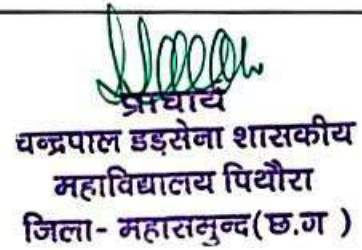 प्राचार्य
चन्द्रपाल डड़सेना शासकीय
महाविद्यालय पिथौरा
जिला- महासमुन्द(छ.ग )